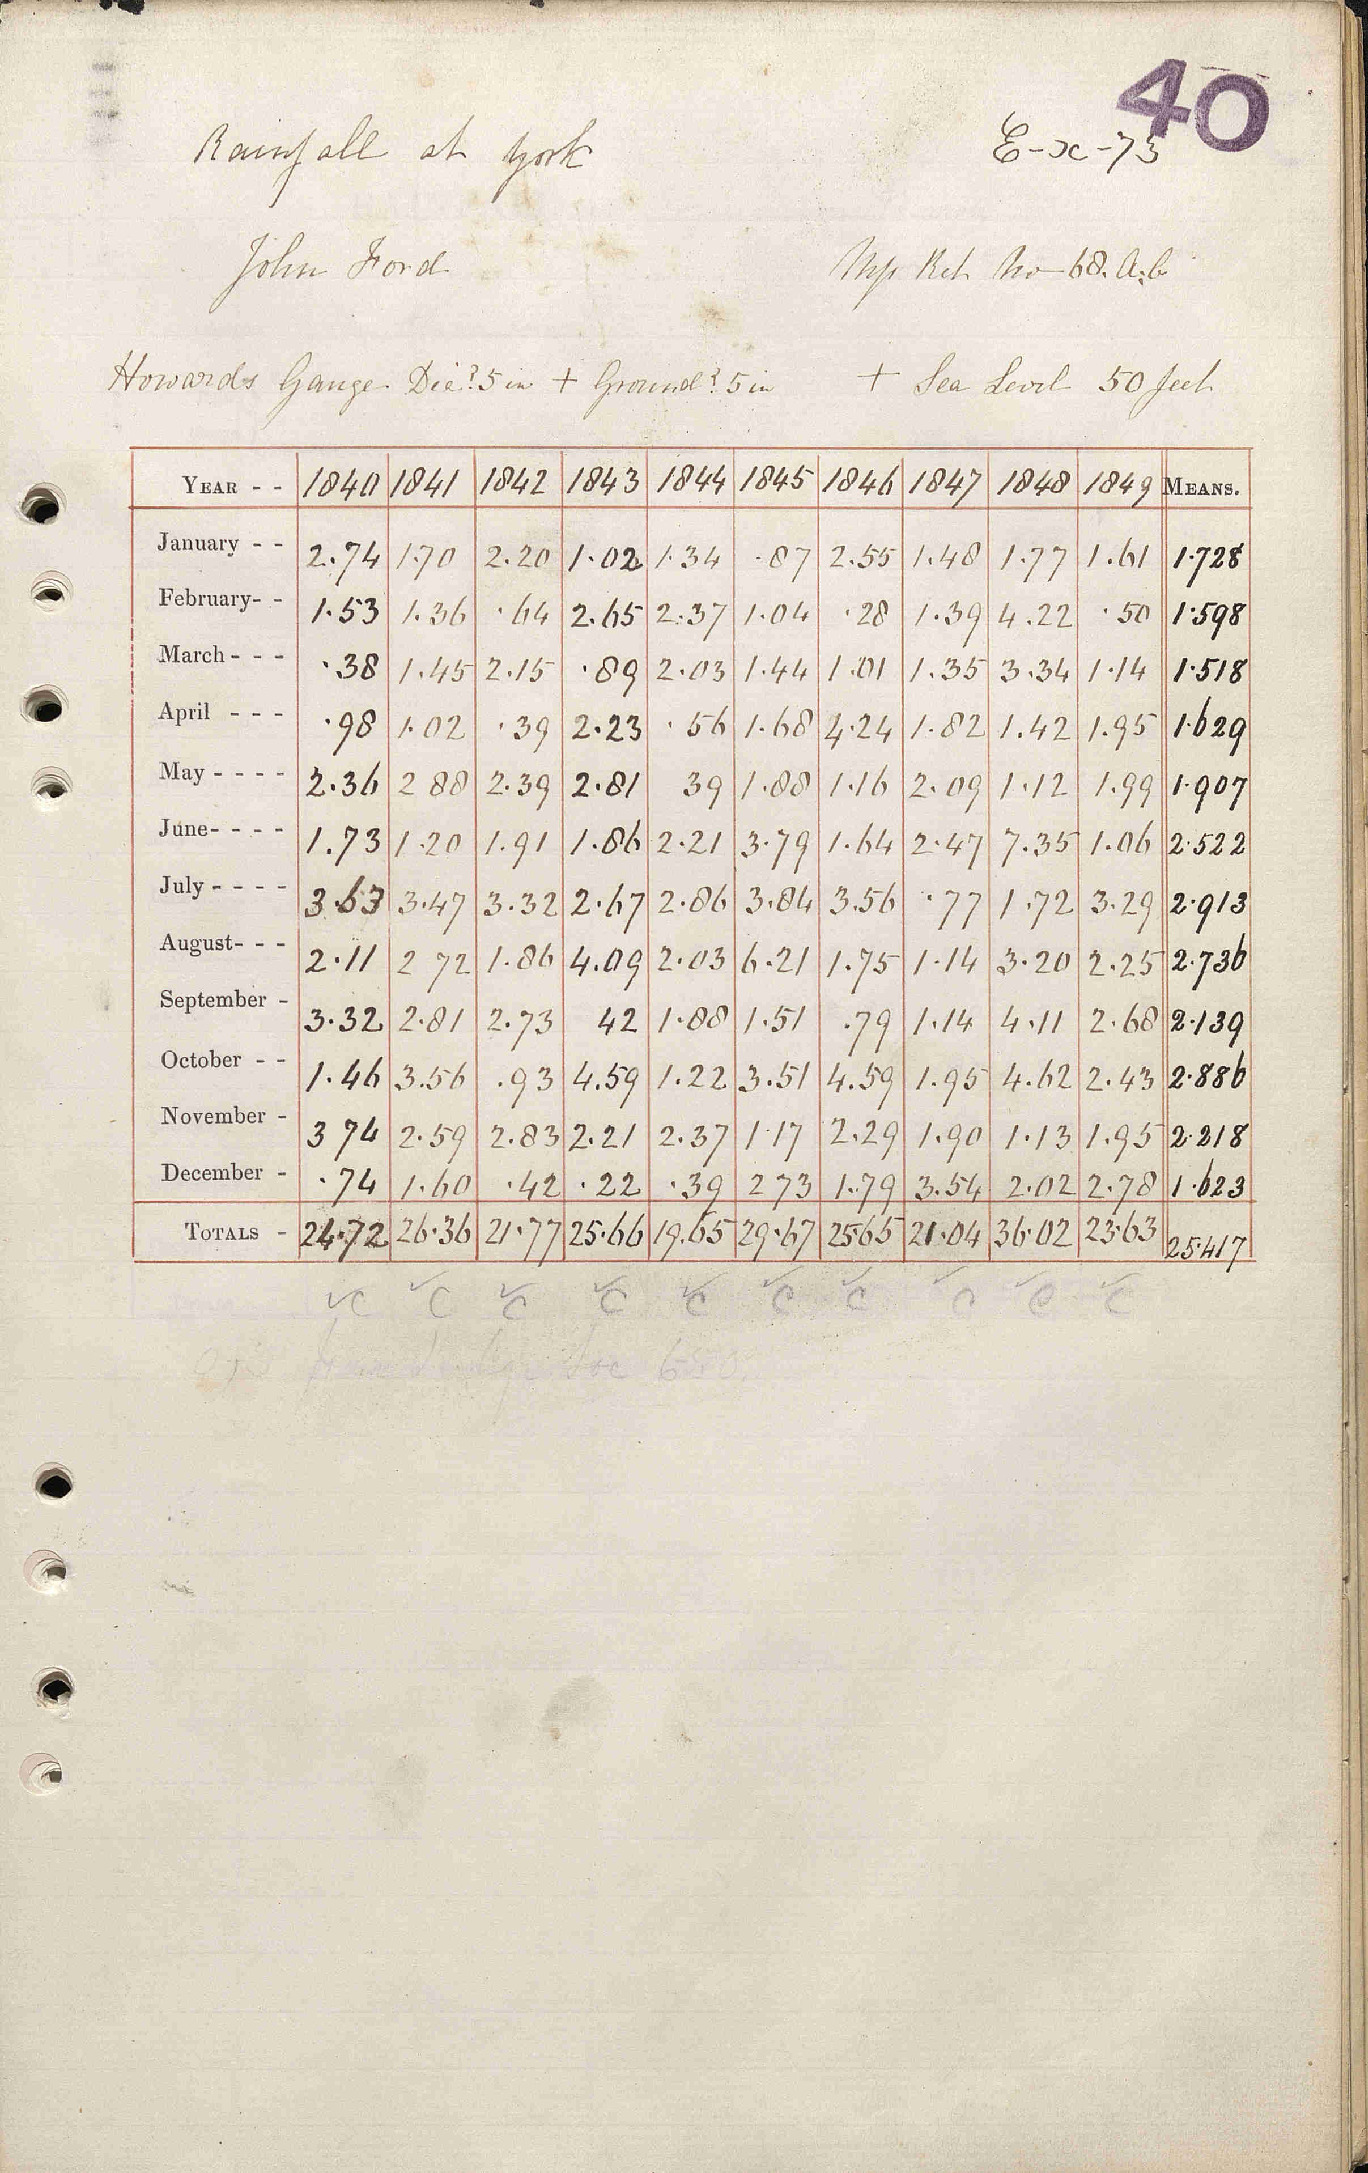 40
Rainfall at York E-x-73
John Ford Mp Ret No 68. A.b
Howards Gauge Dia? 5 in + Ground? 5 in + Sea Level 50 feet
YEAR - - 1840 1841 1842 1843 1844 1845 1846 1847 1848 1849 MEANS.
January - - 2.74 1.70 2.20 1.02 1.34 .87 2.55 1.48 1.77 1.61 1.728
February- - 1.53 1.36 .64 2.65 2.37 1.04 .28 1.39 4.22 .50 1.598
March - - - .38 1.45 2.15 .89 2.03 1.44 1.01 1.35 3.34 1.14 1.518
April - - - .98 1.02 .39 2.23 .56 1.68 4.24 1.82 1.42 1.95 1.629
May - - - - 2.36 2 88 2.39 2.81 39 1.88 1.16 2.09 1.12 1.99 1.907
June- - - - 1.73 1.20 1.91 1.86 2.21 3.79 1.64 2.47 7.35 1.06 2.522
July - - - - 3.63 3.47 3.32 2.67 2.86 3.84 3.56 .77 1.72 3.29 2.913
August- - - 2.11 2 72 1.86 4.09 2.03 6.21 1.75 1.14 3.20 2.25 2.736
September - 3.32 2.81 2.73 42 1.88 1.51 .79 1.14 4.11 2.68 2.139
October - - 1.46 3.56 .93 4.59 1.22 3.51 4.59 1.95 4.62 2.43 2.886
November - 3 74 2.59 2.83 2.21 2.37 1.17 2.29 1.90 1.13 1.95 2.218
December - .74 1.60 .42 .22 .39 2 73 1.79 3.54 2.02 2.78 1.623
TOTALS - 24.72 26.36 21.77 25.66 19.65 29.67 25.65 21.04 36.02 23.63 25.417
✓C ✓C ✓C ✓C ✓C ✓C ✓C ✓C ✓C ✓C